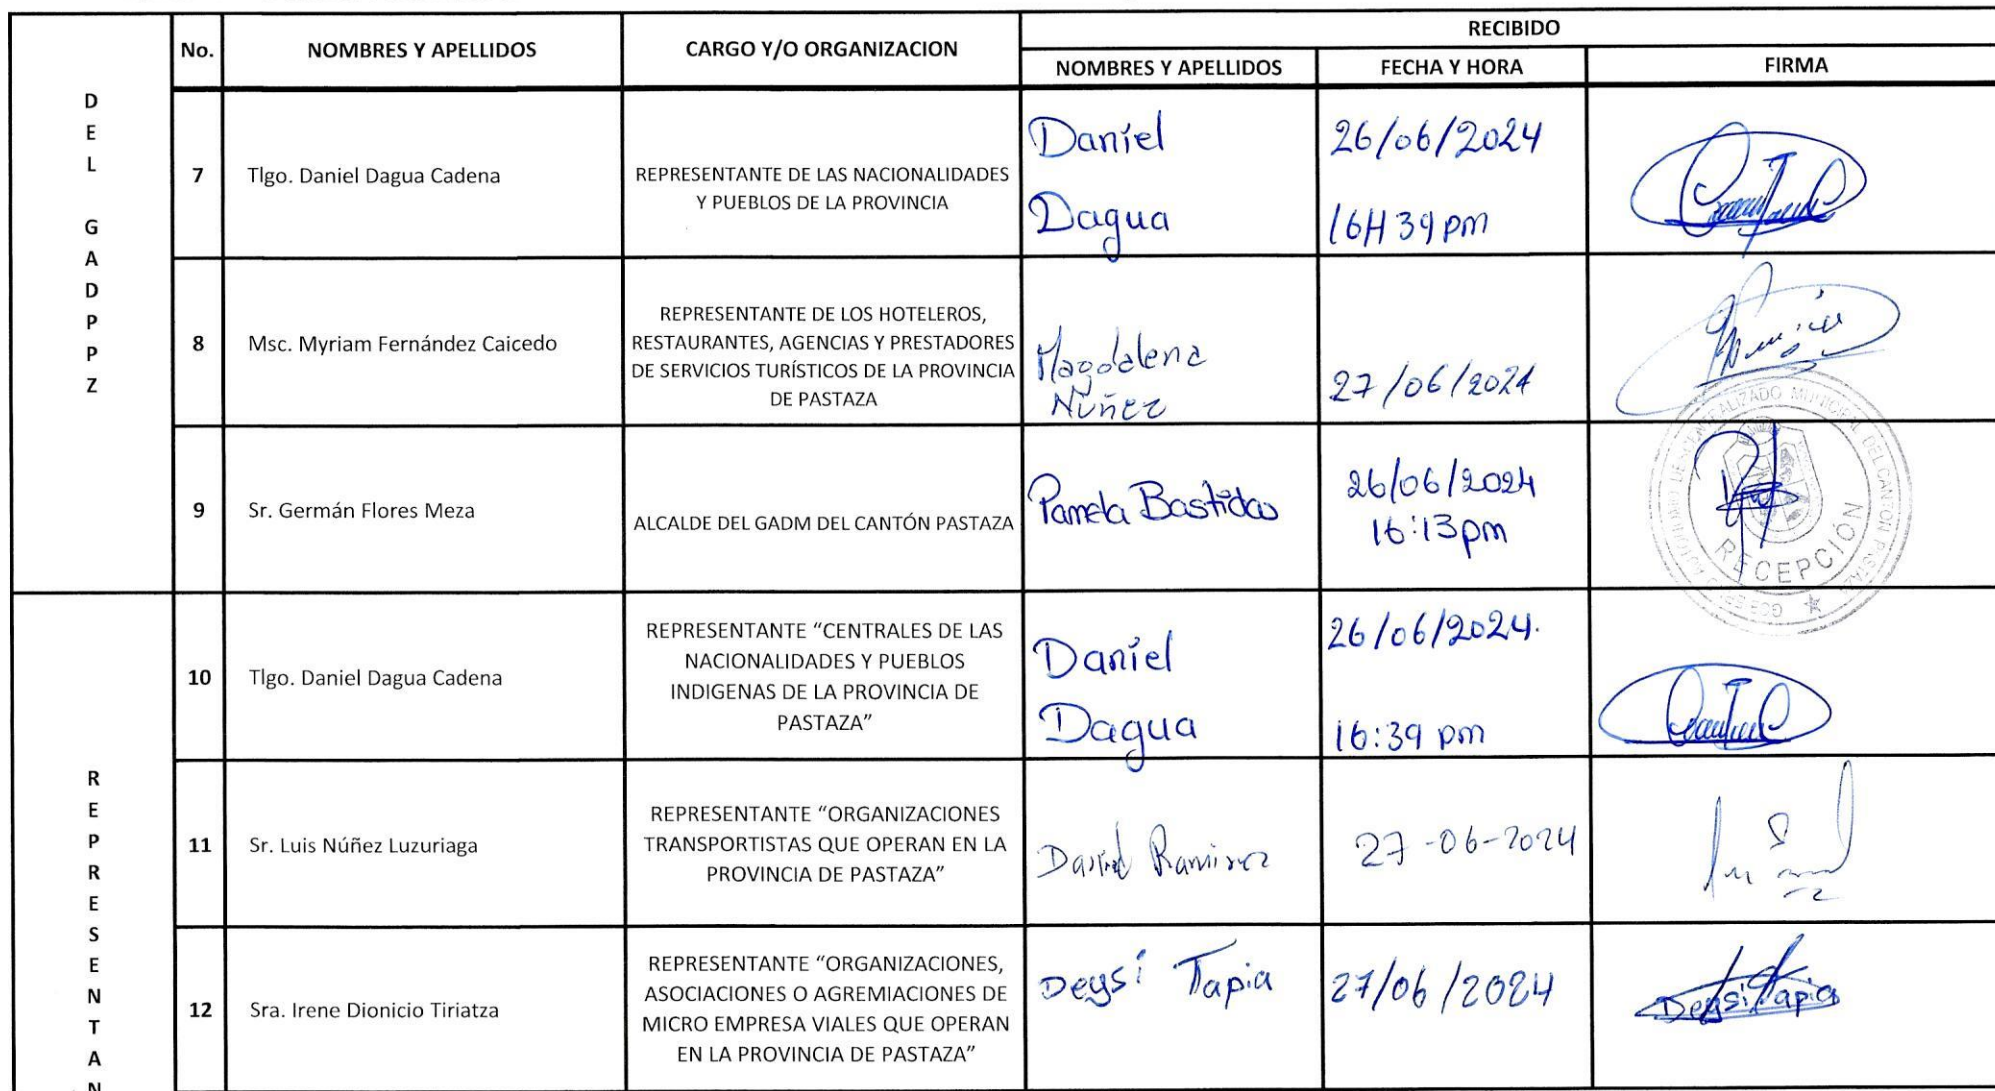 RECIBIDO
No. NOMBRES Y APELLIDOS CARGO Y/O ORGANIZACION NOMBRES Y APELLIDOS FECHA Y HORA FIRMA
D
E
L
G
A
D
P
P
Z
7 Tlgo. Daniel Dagua Cadena
REPRESENTANTE DE LAS NACIONALIDADES
Y PUEBLOS DE LA PROVINCIA
Daniel
Dagua
26/06/2024
16H39pm
8 Msc. Myriam Fernández Caicedo
REPRESENTANTE DE LOS HOTELEROS,
RESTAURANTES, AGENCIAS Y PRESTADORES
DE SERVICIOS TURÍSTICOS DE LA PROVINCIA
DE PASTAZA
Magdalena
Núñez
27/06/2024
9 Sr. Germán Flores Meza
ALCALDE DEL GADM DEL CANTÓN PASTAZA
Pamela Bastidas
26/06/2024
16:13pm
MUNICIPAL DEL CANTON PASTAZA
RECEPCIÓN
R
E
P
R
E
S
E
N
T
A
N
10 Tlgo. Daniel Dagua Cadena
REPRESENTANTE “CENTRALES DE LAS
NACIONALIDADES Y PUEBLOS
INDIGENAS DE LA PROVINCIA DE
PASTAZA”
Daniel
Dagua
26/06/2024.
16:39 pm
11 Sr. Luis Núñez Luzuriaga
REPRESENTANTE “ORGANIZACIONES
TRANSPORTISTAS QUE OPERAN EN LA
PROVINCIA DE PASTAZA”
Daniel Ramirez
27-06-2024
12 Sra. Irene Dionicio Tiriatza
REPRESENTANTE “ORGANIZACIONES,
ASOCIACIONES O AGREMIACIONES DE
MICRO EMPRESA VIALES QUE OPERAN
EN LA PROVINCIA DE PASTAZA”
Deysi Tapia
27/06/2024
Deysi Tapia